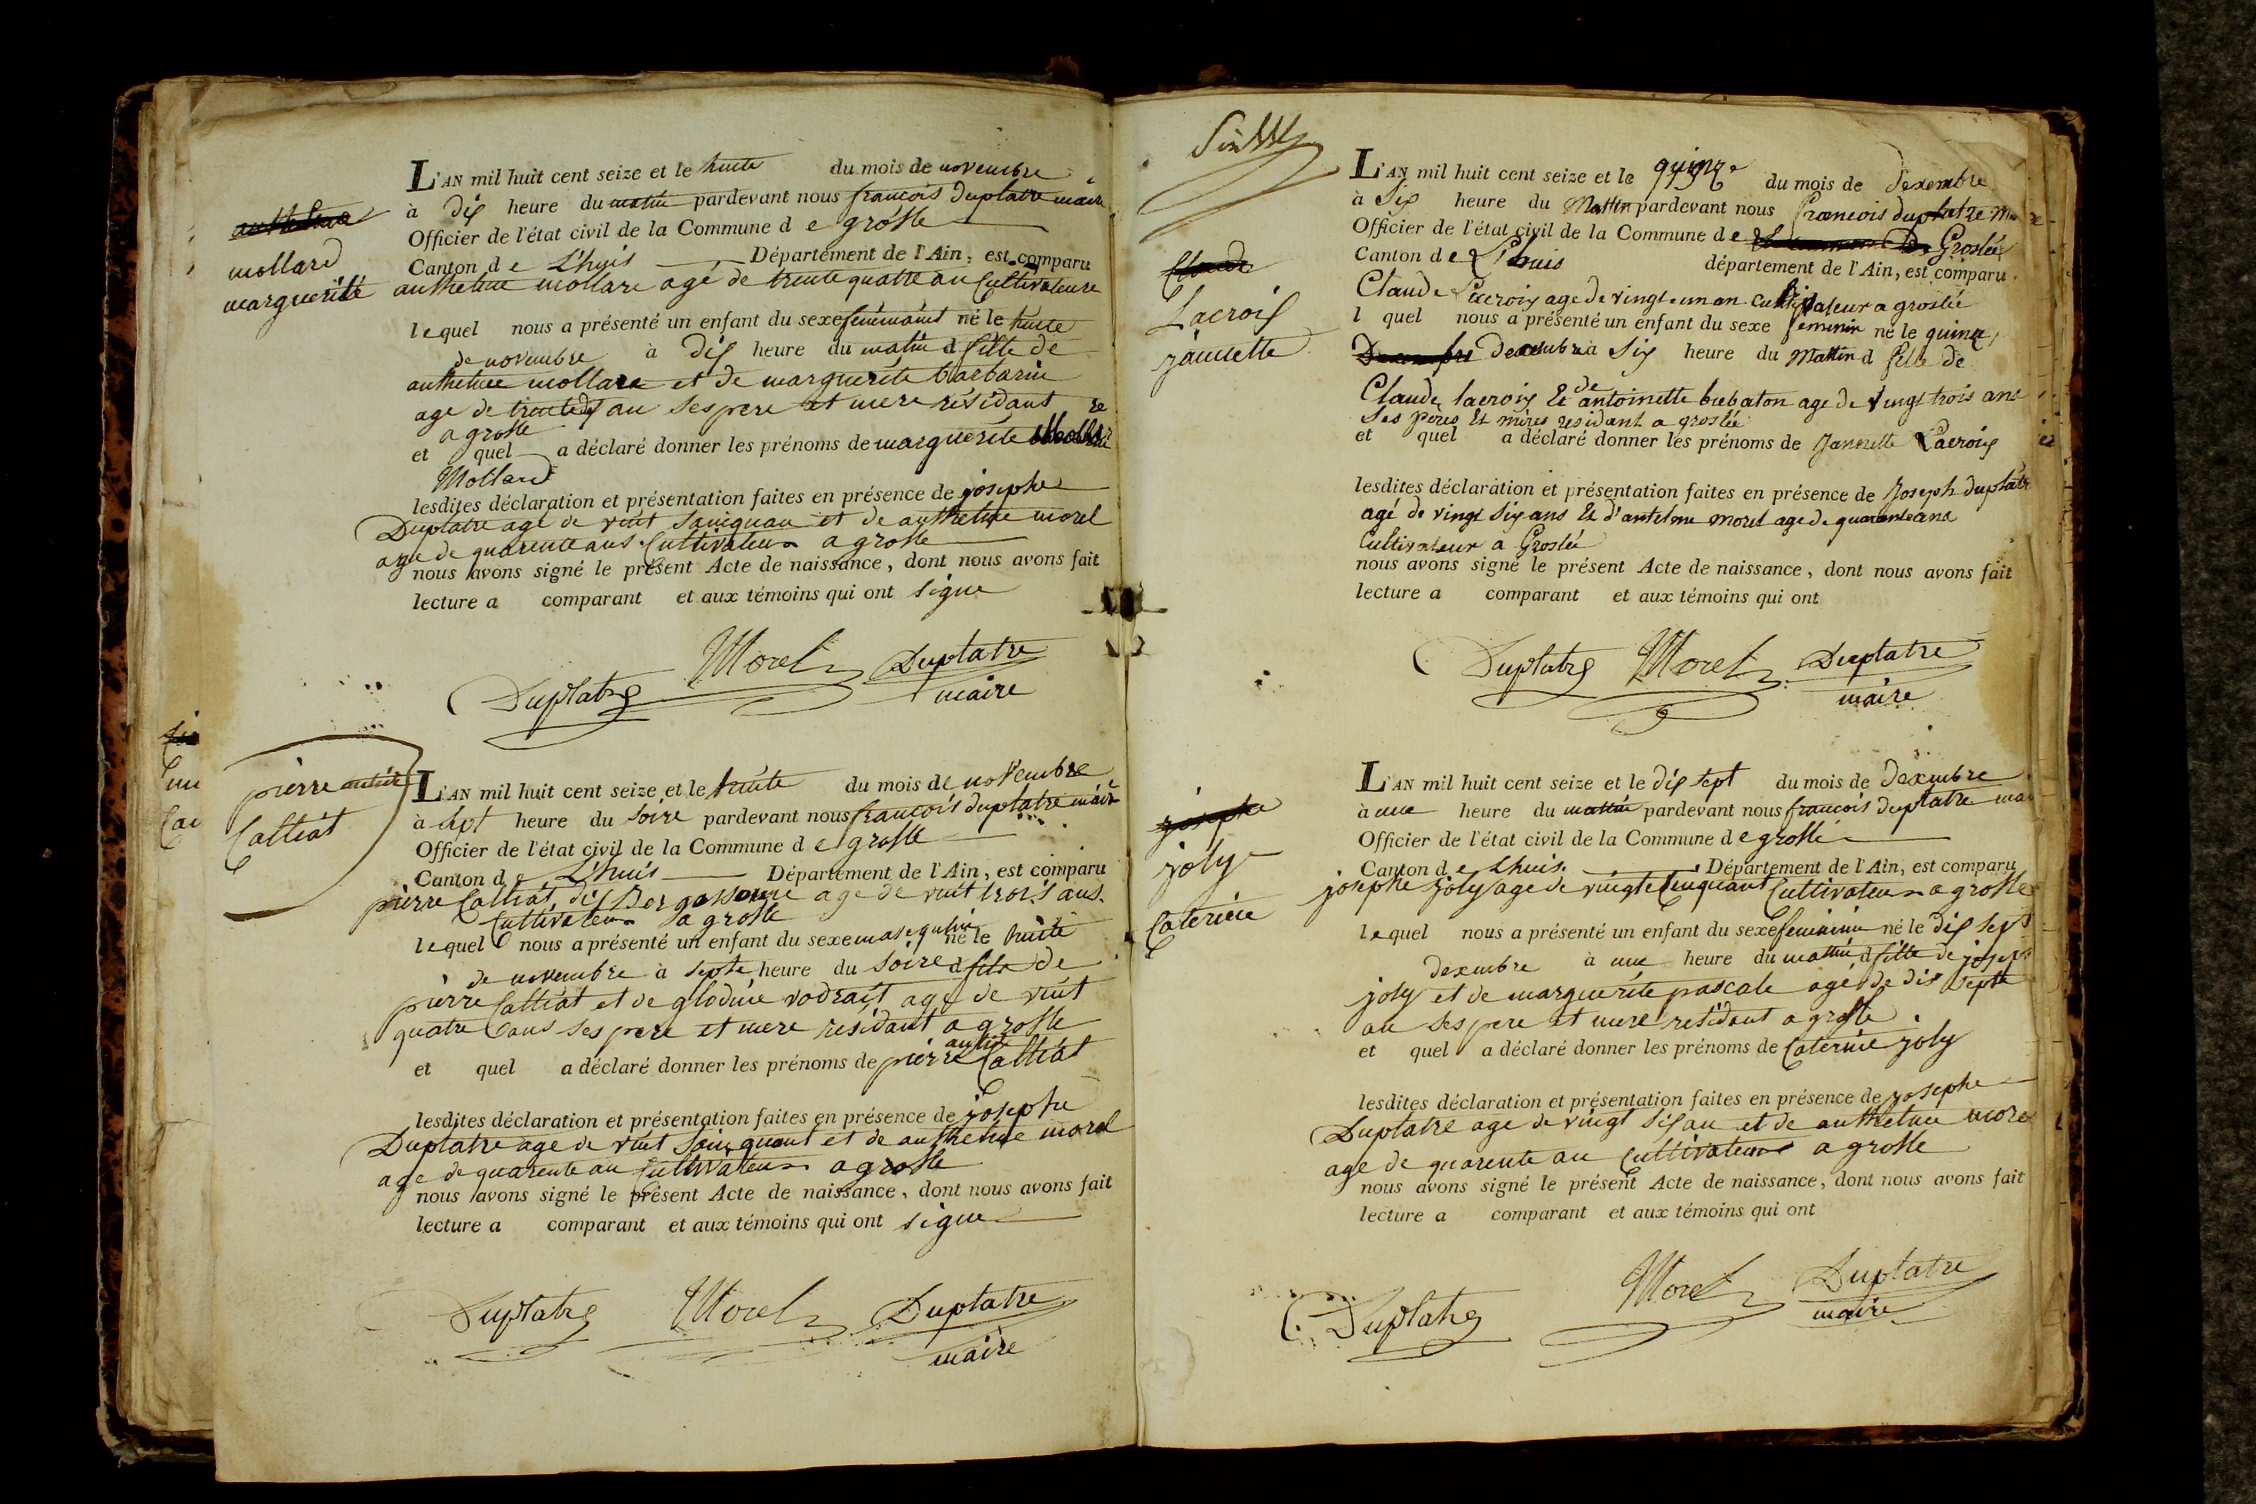 mollard
marguerite
L'AN mil huit cent seize et le huite du mois de novembre
à dis heure du matin pardevant nous francois Duplatre maire
Officier de l'état civil de la Commune d e grosle
Canton d e L'huis Département de l'Ain, est comparu
anthelme mollare agé de trente quatre an Cultivateure
lequel nous a présenté un enfant du sexe né le huite
de novembre à dis heure du matin d fille de
anthelme mollare et de marguerite barbarin
age de an ses pere et mere résidant
a grosle
et quel a déclaré donner les prénoms de marguerite
Mollard
lesdites déclaration et présentation faites en présence de josephe
Duplatre age de vint sainquan et de anthelme morel
age de quarente ans Cultivateur a grosle
nous avons signé le présent Acte de naissance, dont nous avons fait
lecture a comparant et aux témoins qui ont signe
Duplatre Morel Duplatre
maire
pierre
Calliat
L'AN mil huit cent seize et le huite du mois de novembre
à sept heure du soire pardevant nous francois duplatre maire
Officier de l'état civil de la Commune d e grosle
Canton d e L'huis Département de l'Ain, est comparu
pierre Calliat dis age de vint trois ans
Cultivateur a grosle
lequel nous a présenté un enfant du sexe masequlin né le huite
de novembre à septe heure du soire d fils de
pierre Calliat et de glodine age de vint
quatre ans ses pere et mere residant a grosle
et quel a déclaré donner les prénoms de pierre Calliat
lesdites déclaration et présentation faites en présence de josephe
Duplatre age de vint sainquant et de anthelme morel
age de quarente an Cultivateur a grosle
nous avons signé le présent Acte de naissance, dont nous avons fait
lecture a comparant et aux témoins qui ont signe
Duplatre Morel Duplatre
maire
Claude
Lacroix
jannette
L'AN mil huit cent seize et le quinze du mois de dexembre
à Six heure du Mattin pardevant nous francois duplatre
Officier de l'état civil de la Commune d e Groslée
Canton d e Lhuis département de l'Ain, est comparu
Claude Lacroix age de vingt un an cultivateur a groslée
l quel nous a présenté un enfant du sexe feminin né le quinze
Decembre à Six heure du Mattin d fille de
Claude lacroix Et de antoinette age de vingt trois ans
Ses pères Et mères residant a groslée
et quel a déclaré donner les prénoms de Jannette Lacroix
lesdites déclaration et présentation faites en présence de Joseph duplatre
agé de vingt Six ans Et d'antelme morel age de quarante ans
Cultivateur a Groslée
nous avons signé le présent Acte de naissance, dont nous avons fait
lecture a comparant et aux témoins qui ont
Duplatre Morel Duplatre
maire
josephe
joly
Caterine
L'AN mil huit cent seize et le dis sept du mois de dexembre
à une heure du matin pardevant nous francois duplatre
Officier de l'état civil de la Commune d e grosle
Canton d e Lhuis Département de l'Ain, est comparu
josephe joly age de Cultivateur a grosle
lequel nous a présenté un enfant du sexe feminin né le dis sept
dexembre à une heure du matin d fille de joseph
joly et de marguerite pascale agé de dis septe
an ses pere et mere residant a grosle
et quel a déclaré donner les prénoms de Caterine joly
lesdites déclaration et présentation faites en présence de josephe
Duplatre age de vingt sis an et de anthelme morel
age de quarente an Cultivateur a grosle
nous avons signé le présent Acte de naissance, dont nous avons fait
lecture a comparant et aux témoins qui ont
Duplatre Morel Duplatre
maire